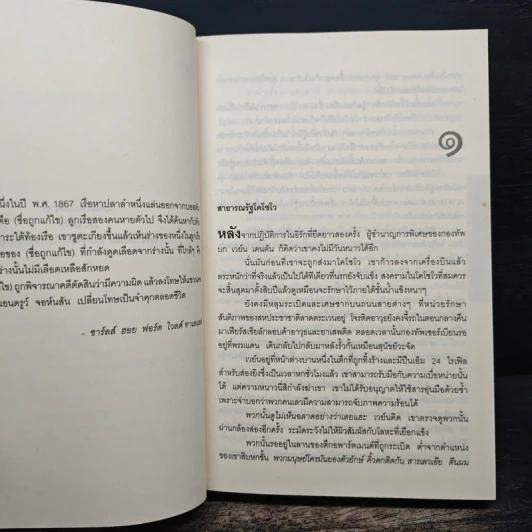 นึ่งในปี พ.ศ. 1867 เรือหาปลาลำหนึ่งแล่นออกจากบอสตัน
คือ (ชื่อถูกแก้ไข) ลูกเรือสองคนหายตัวไป จึงได้ค้นหากัน
าระใต้ท้องเรือ เขาชูตะเกียงขึ้นแล้วเห็นร่างของหนึ่งในลูกเ
ของ (ชื่อถูกแก้ไข) ที่กำลังดูดเลือดจากร่างนั้น ที่ใกล้ๆ
ร่างนั้นไม่มีเลือดเหลือสักหยด
) ถูกพิจารณาคดีตัดสินว่ามีความผิด แล้วลงโทษให้แขวนค
แอนดรูว์ จอห์นสัน เปลี่ยนโทษเป็นจำคุกตลอดชีวิต
- ชาร์ลส์ ฮอย ฟอร์ต ไวลด์ ทาเลนต์
๑
สาธารณรัฐโคโซโว
หลังจากปฏิบัติการในอิรักที่ยืดยาวสองครั้ง ผู้ชำนาญการพิเศษของกองทัพ
บก เวย์น เดนตัน ก็คิดว่าเขาคงไม่มีวันหนาวได้อีก
นั่นมันก่อนที่เขาจะถูกส่งมาโคโซโว เขาก้าวลงจากเครื่องบินแล้ว
ตระหนักว่าที่จริงแล้วเป็นไปได้ทีเดียวที่นรกยังจับแข็ง สงครามในโคโซโวที่สมควร
จะสิ้นสุดมาตั้งสิบปีแล้วดูเหมือนจะรักษาไว้ภายใต้ชั้นน้ำแข็งหนา
ยังคงมีหลุมระเบิดและเศษซากบนถนนสายต่างๆ ที่หน่วยรักษา
สันติภาพของสหประชาชาติลาดตระเวนอยู่ โจรติดอาวุธยังคงจี้รถในตอนกลางคืน
มาเฟียรัสเซียลักลอบค้าอาวุธและยาเสพติด ตลอดเวลานั้นกองทัพเซอร์เบียนรอ
อยู่ที่พรมแดน เดินกลับไปกลับมาหลังรั้วกั้นเหมือนสุนัขยิวะจัด
เวย์นอยู่ที่หน้าต่างบานหนึ่งในตึกที่ถูกทิ้งร้างและมีปืนเอ็ม 24 ไรเฟิล
สำหรับส่องยิงซึ่งเป็นเวลาหกชั่วโมงแล้ว เขาสามารถรับมือกับความเบื่อหน่ายนั้น
ได้ แต่ความหนาวนี่สิกำลังฆ่าเขา เขาไม่ได้รับอนุญาตให้ใช้สารอุ่นมือด้วยซ้ำ
เพราะจำบอกว่าพวกคนเลวมีความสามารถจับภาพความร้อนได้
พวกนั้นดูไม่เห็นฉลาดอย่างว่าเลยแฮะ เวย์นคิด เขาตรวจดูพวกนั้น
ผ่านกล้องส่องอีกครั้ง ระมัดระวังไม่ให้ผิวสัมผัสกับโลหะที่เยือกแข็ง
พวกนั้นรออยู่ในลานของตึกอพาร์ตเมนต์ที่ถูกระเบิด ต่ำจากตำแหน่ง
ของเขาสิบหกชั้น พวกมนุษย์โครมันยองตัวยักษ์ คิ้วดกติดกัน สารเลวเอ๊ย ตีนผม